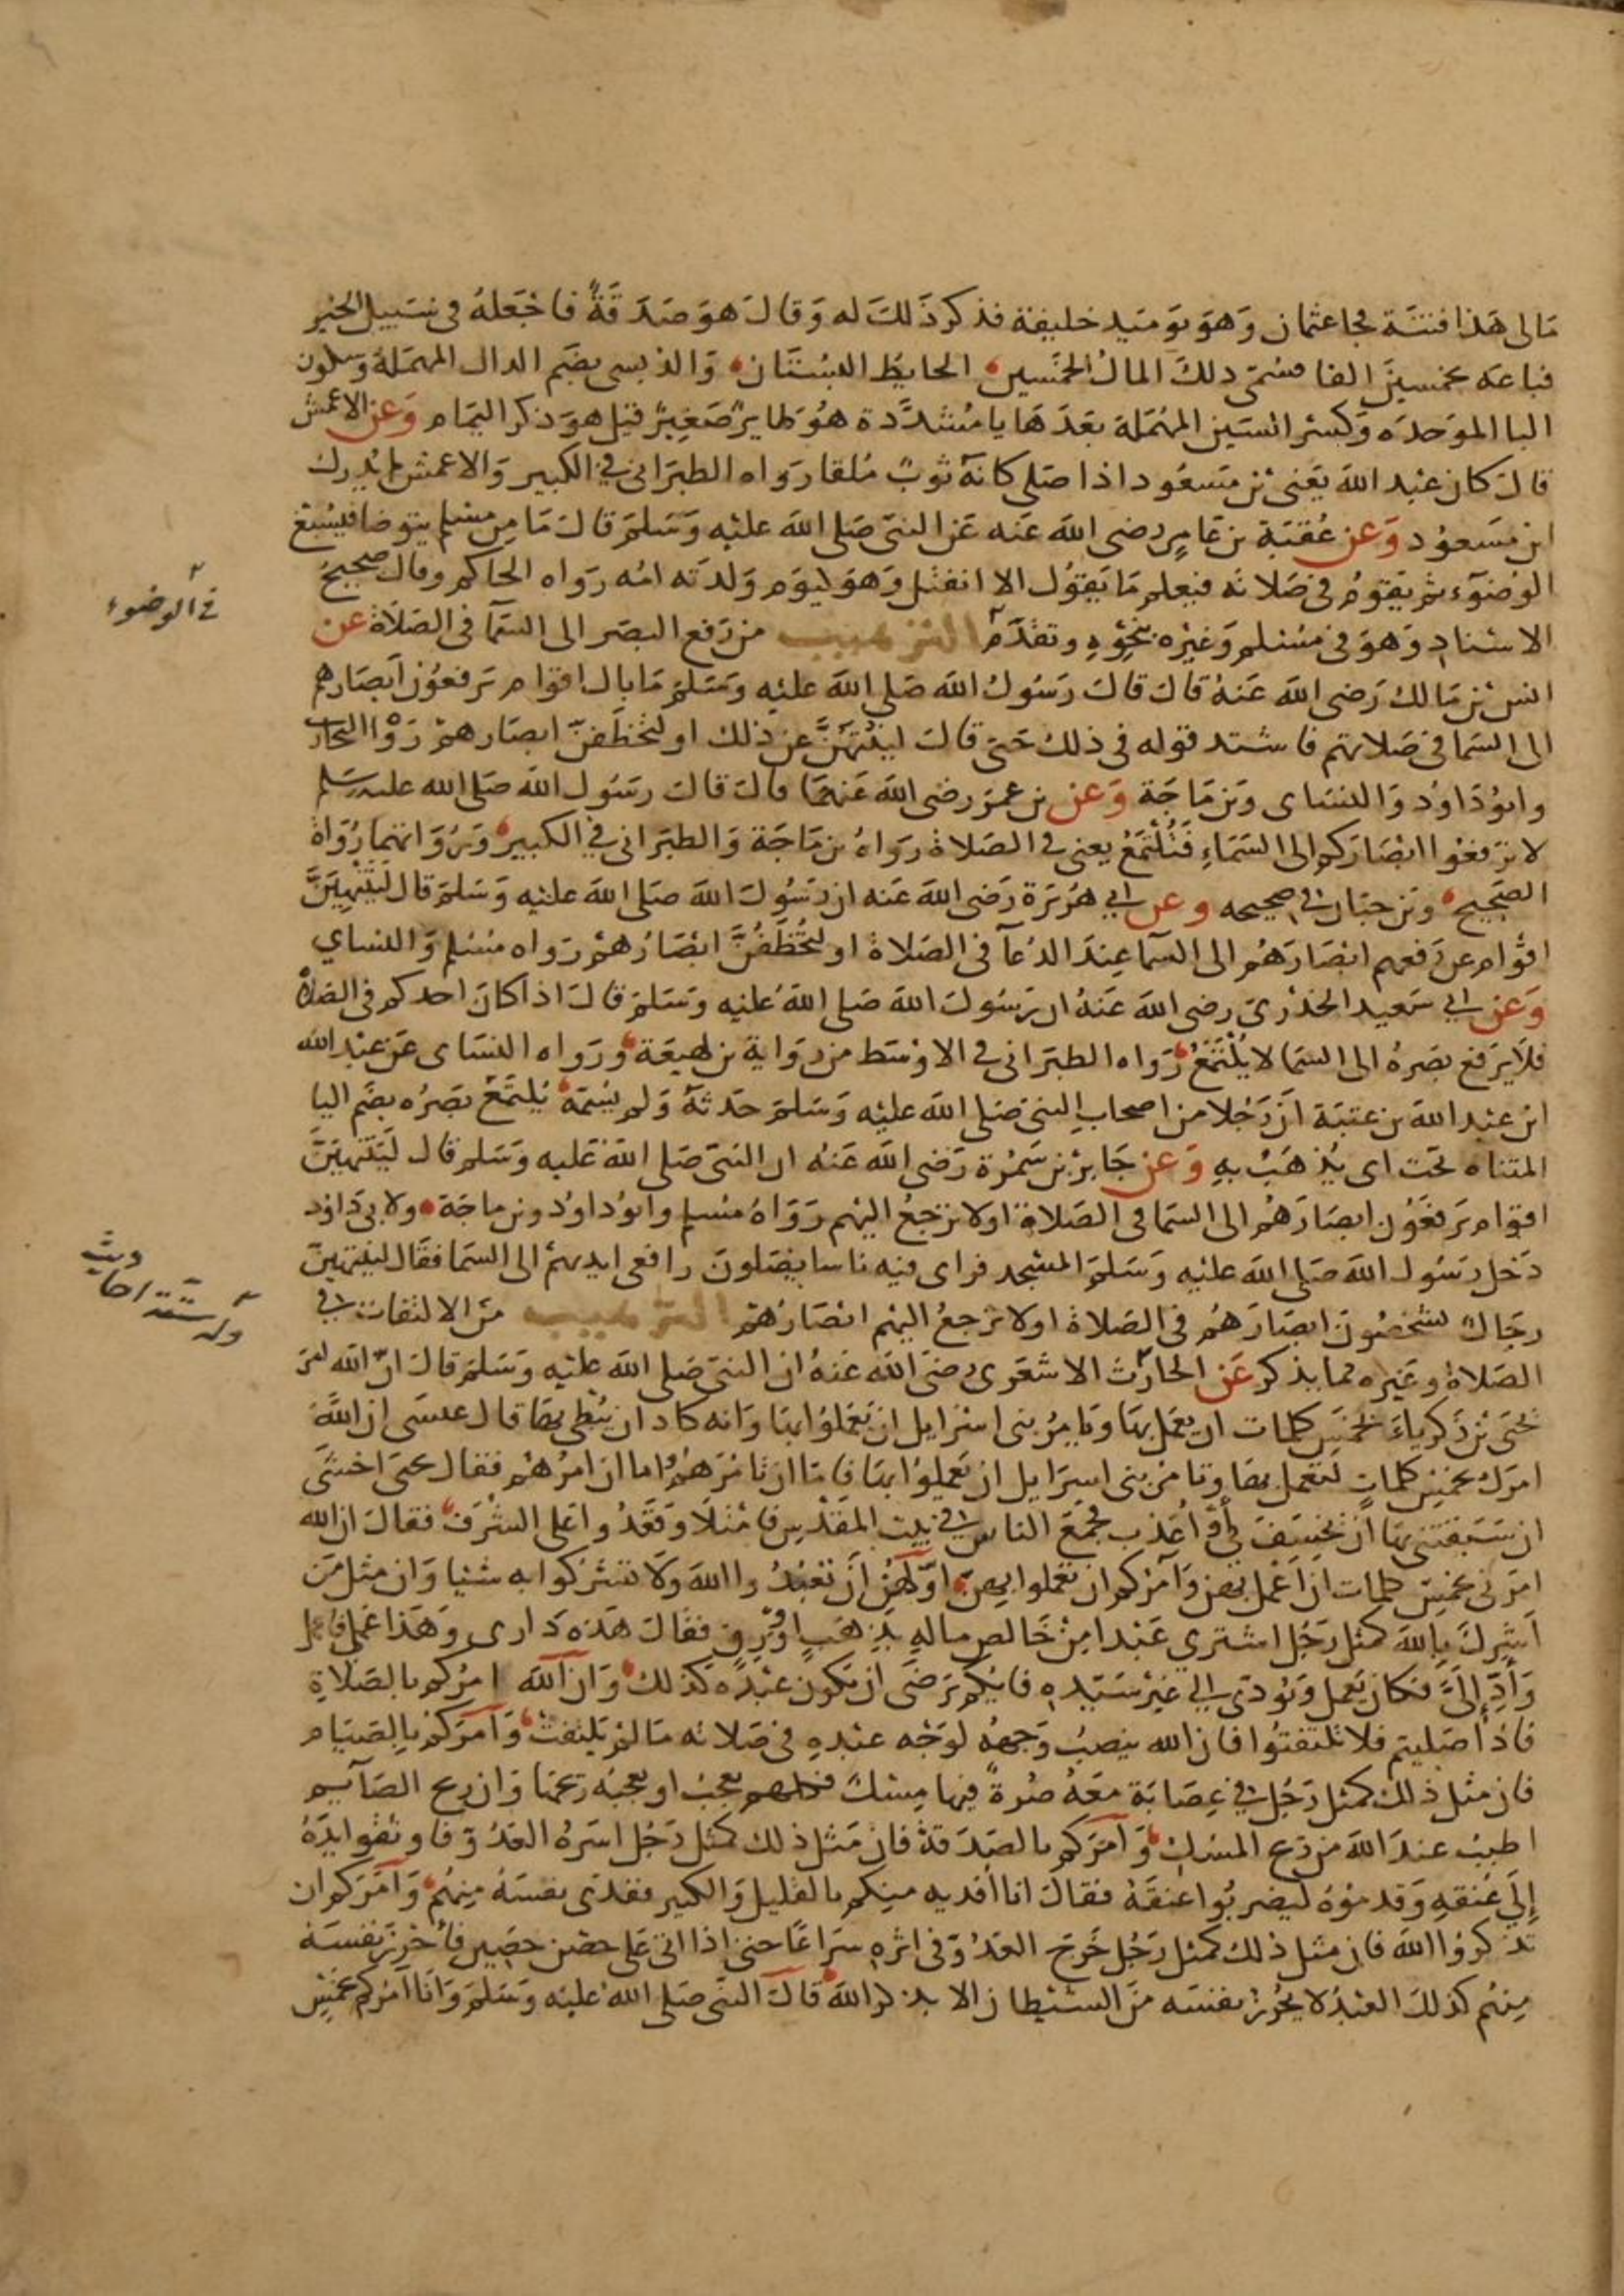 مالى هذا فتنة فجا عثمان وهو يوميد خليفة فذكر ذلك له وقال هو صدقة فاجعله فى سبيل الخير
فباعه بخمسين الفا فسمى ذلك المال الخمسين الحايط البستان والدبسى بضم الدال المهملة وسكون
البا الموحده وكسر السين المهملة بعدها يا مشددة هو طاير صغير قيل هو ذكر اليمام وعن الاعمش
قال كان عبد الله يعنى بن مسعود اذا صلى كانه ثوب ملقا رواه الطبرانى فى الكبير والاعمش لم يدرك
ابن مسعود وعن عقبة بن عامر رضى الله عنه عن النبى صلى الله عليه وسلم قال ما من مسلم يتوضا فيسبغ
الوضوء ثم يقوم فى صلاته فيعلم ما يقول الا انفتل وهو كيوم ولدته امه رواه الحاكم وقال صحيح
الاسناد وهو فى مسلم وغيره بنحوه وتقدم الترهيب من رفع البصر الى السما فى الصلاة عن
فى الوضوء
انس بن مالك رضى الله عنه قال قال رسول الله صلى الله عليه وسلم ما بال اقوام يرفعون ابصارهم
الى السما فى صلاتهم فاشتد قوله فى ذلك حتى قال لينتهن عن ذلك او لتخطفن ابصارهم رواه البخارى
وابو داود والنساى وبن ماجة وعن بن عمر رضى الله عنهما قال قال رسول الله صلى الله عليه وسلم
لا ترفعوا ابصاركم الى السماء فتلتمع يعنى فى الصلاة رواه بن ماجة والطبرانى فى الكبير ورواتهما رواة
الصحيح وبن حبان فى صحيحه وعن ابي هريرة رضى الله عنه ان رسول الله صلى الله عليه وسلم قال لينتهين
اقوام عن رفعهم ابصارهم الى السما عند الدعا فى الصلاة او لتخطفن ابصارهم رواه مسلم والنساي
وعن ابي سعيد الخدرى رضى الله عنه ان رسول الله صلى الله عليه وسلم قال اذا كان احدكم فى الصلاة
فلا يرفع بصره الى السما لا يلتمع رواه الطبرانى فى الاوسط من رواية بن لهيعة ورواه النساى عن عبد الله
ابن عبد الله بن عتبة ان رجلا من اصحاب النبى صلى الله عليه وسلم حدثه ولم يسمه يلتمع بصره بضم اليا
المثناه تحت اى يذهب به وعن جابر بن سمرة رضى الله عنه ان النبى صلى الله عليه وسلم قال لينتهين
اقوام يرفعون ابصارهم الى السما فى الصلاة او لا ترجع اليهم رواه مسلم وابو داود وبن ماجة ولابى داود
دخل رسول الله صلى الله عليه وسلم المسجد فراى فيه ناسا يصلون رافعى ايديهم الى السما فقال لينتهين
رجال يشخصون ابصارهم فى الصلاة او لا ترجع اليهم ابصارهم الترهيب من الالتفات فى
ستة احاديث
الصلاة وغيره مما يذكر عن الحارث الاشعرى رضى الله عنه ان النبى صلى الله عليه وسلم قال ان الله امر
يحيى بن زكرياء بخمس كلمات ان يعمل بها ويامر بنى اسرايل ان يعملوا بها وانه كاد ان يبطى بها قال عيسى ان الله
امرك بخمس كلمات لتعمل بها وتامر بنى اسرايل ان يعملوا بها فاما ان تامرهم واما ان امرهم فقال يحيى اخشى
ان سبقتنى بها ان يخسف بي او اعذب فجمع الناس في بيت المقدس فامتلا وقعدوا على الشرف فقال ان الله
امرنى بخمس كلمات ان اعمل بهن وآمركم ان تعملوا بهن اولهن ان تعبدوا الله ولا تشركوا به شئيا وان مثل من
أشرك بالله كمثل رجل اشتري عبدا من خالص ماله بذهب او ورق فقال هذه دارى وهذا عملى فاعمل
وأد إلى فكان يعمل ويودى الي غير سيده فايكم يرضى ان يكون عبده كذلك وان الله امركم بالصلاة
فاذا صليتم فلا تلتفتوا فان الله ينصب وجهه لوجه عبده فى صلاته ما لم يلتفت وآمركم بالصيام
فان مثل ذلك كمثل رجل في عصابة معه صرة فيها مسك فكلهم يعجب او يعجبه ريحها وان ريح الصآيم
اطيب عند الله من ريح المسك وآمركم بالصدقة فان مثل ذلك كمثل رجل اسره العدو فاوثقوا يده
إلى عنقه وقدموه ليضربوا عنقه فقال انا أفديه منكم بالقليل والكثير ففدى نفسه منهم وآمركم ان
تذكروا الله فان مثل ذلك كمثل رجل خرج العدو فى اثره سراعا حتى اذا اتى على حصن حصين فأحرز نفسه
منهم كذلك العبد لا يحرز نفسه من الشيطان الا بذكر الله قال النبى صلى الله عليه وسلم وانا آمركم بخمس